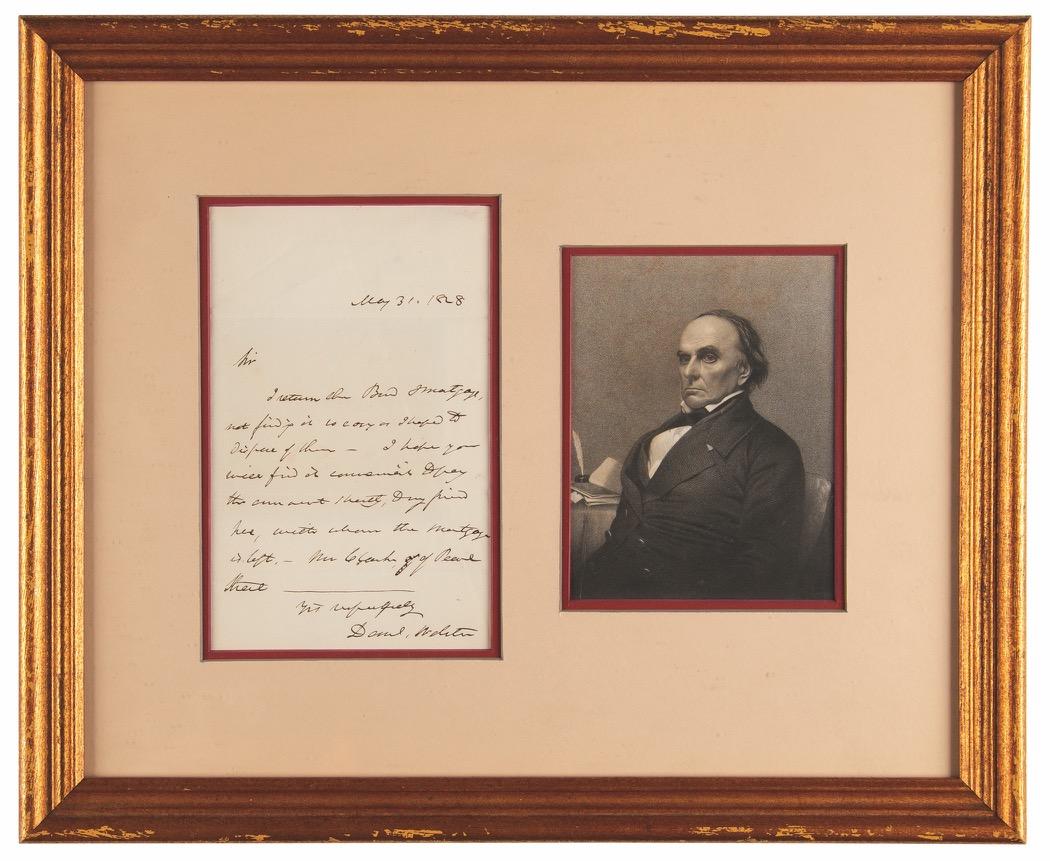 May 31. 1828
Sir
I return the Bond & mortgage,
not finding it so easy as I hoped to
dispose of them — I hope you
will find it convenient to pay
the amount & write, to my friend
here, with whom the mortgage
is left, — Mr Clark, of Pearl
Street
Yrs respectfully
Danl. Webster